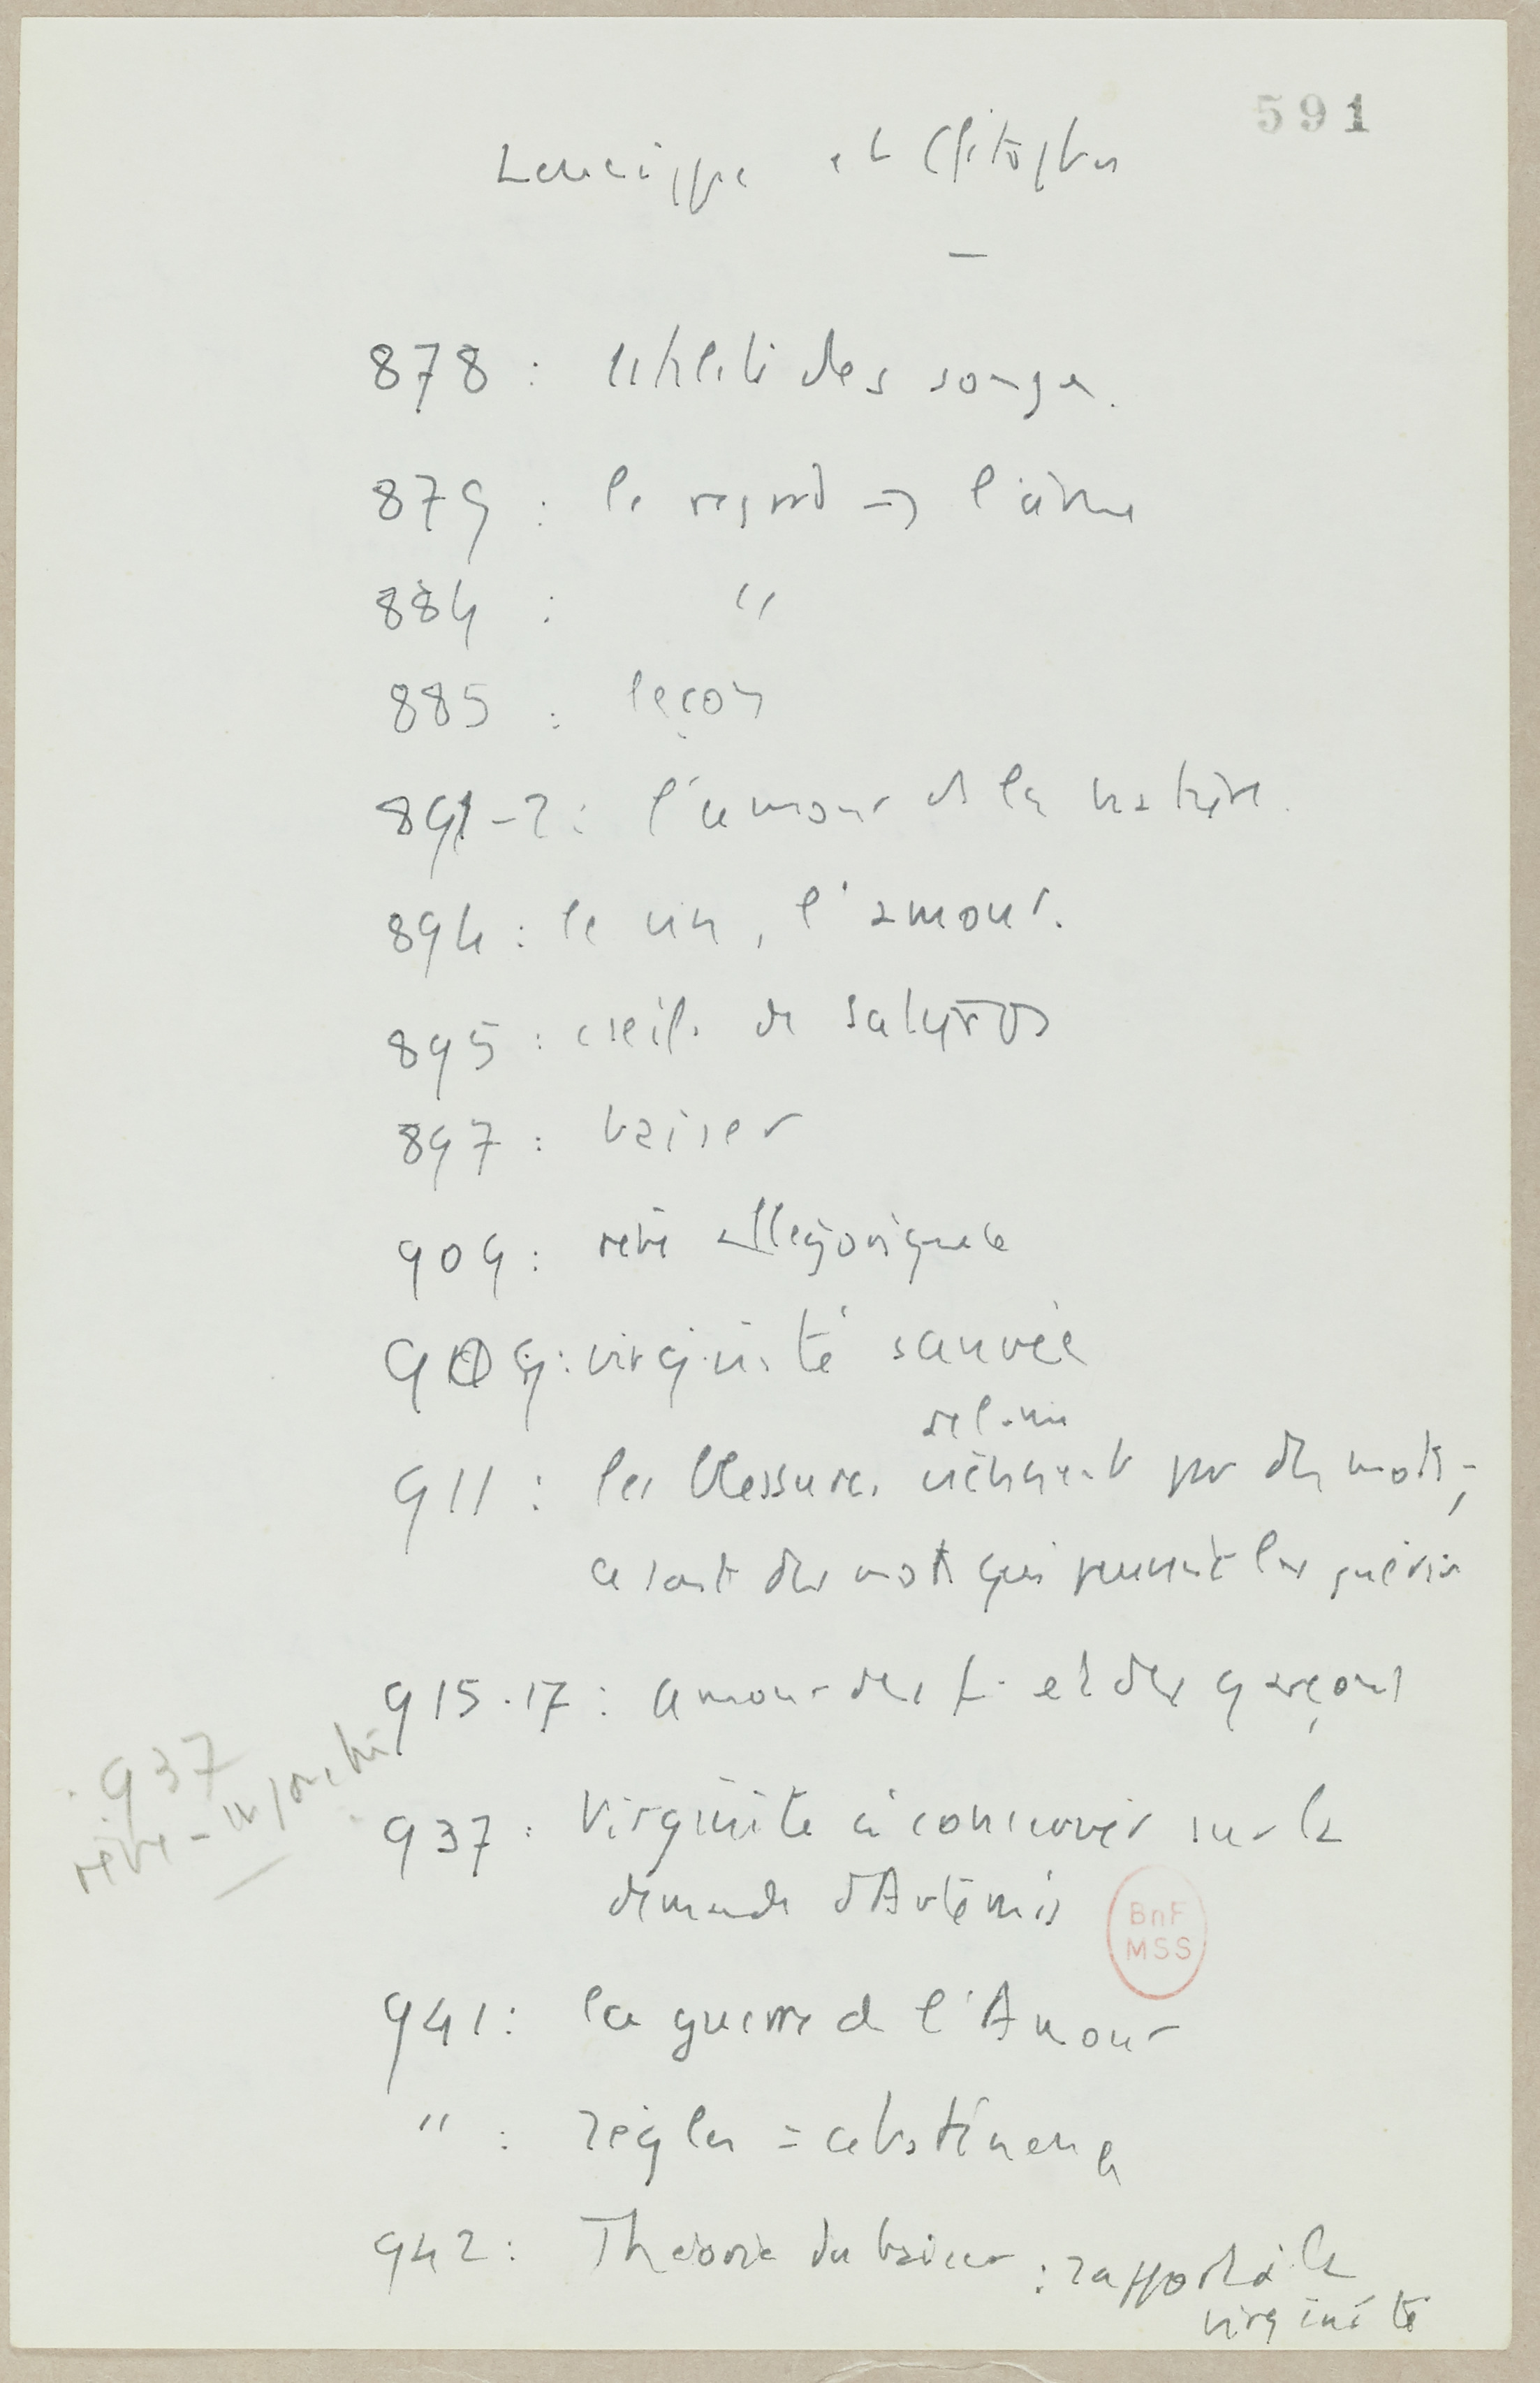 591
Leucippe et Clitophon
—
878 : utilité des songes.
879 : le regard → l'âme
884 : "
885 : leçon
891-2 : l'amour ds la nature.
894 : le vin, l'amour.
895 : conseils de Satyros
897 : baiser
909 : rêve allégorique
909 : virginité sauvée
911 : les blessures viennent par des mots ;
ce sont des mots qui peuvent les guérir
915-17 : amour des f. et des garçons
937
rêve -
937 : Virginité à conserver sur la
demande d'Artémis
941 : la guerre de l'Amour
" : règles = abstinence
942 : Théorie du baiser : rapport à la
virginité
BnF
MSS